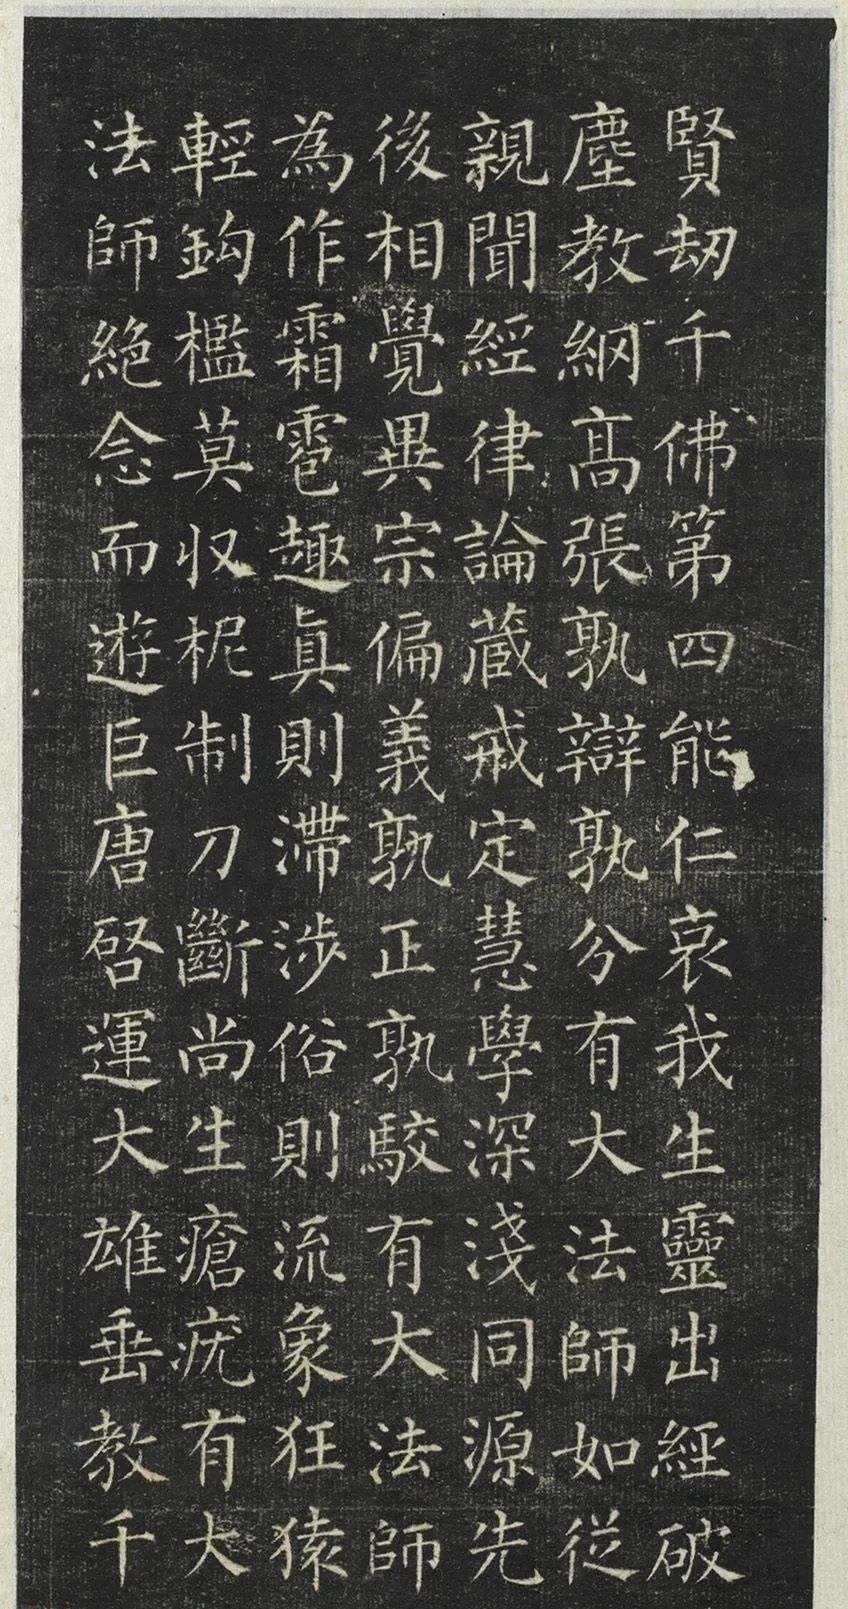 賢劫千佛第四能仁哀我生靈出經破
塵教綱高張孰辯孰分有大法師如從
親聞經律論藏戒定慧學深淺同源先
後相覺異宗偏義孰正孰駮有大法師
為作霜雹趣真則滯涉俗則流象狂猿
輕鈎檻莫收柅制刀斷尚生瘡疣有大
法師絕念而遊巨唐啓運大雄垂教千